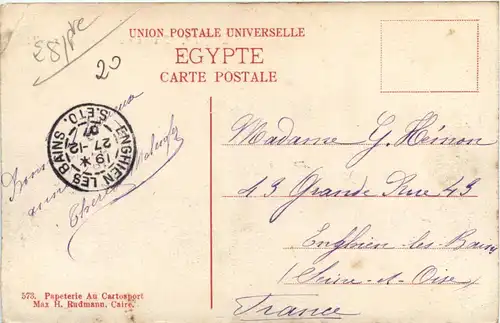 UNION POSTALE UNIVERSELLE
EGYPTE
CARTE POSTALE
20
ENGHIEN LES BAINS
S.ETO.
19 *
27-12
07
Madame G. Hémon
43 Grande Rue 43
Enghien-les-Bains
Seine-et-Oise
France
573. Papeterie Au Cartosport
Max H. Rudmann, Caire.